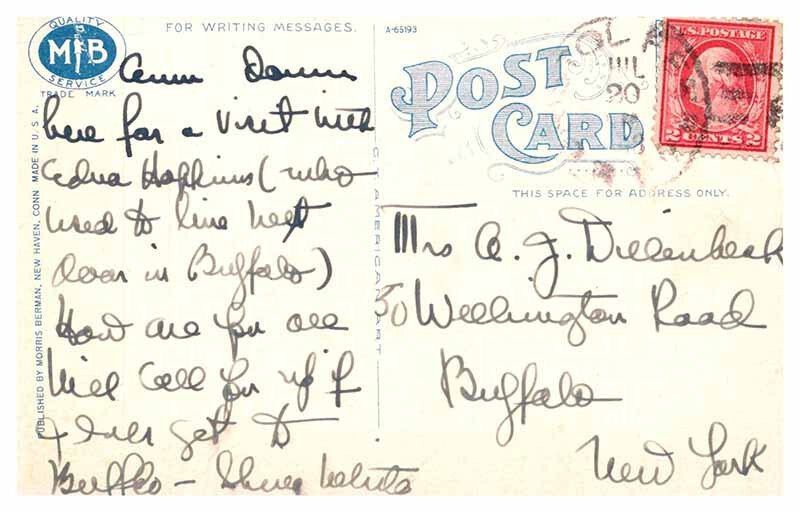 QUALITY
M B
SERVICE
TRADE MARK
FOR WRITING MESSAGES.
Am Down
here for a visit with
Edna Hopkins (who
used to live next
door in Buffalo)
How are you all
Will call you up if
I ever get to
Buffalo –
PUBLISHED BY MORRIS BERMAN, NEW HAVEN, CONN. MADE IN U.S.A.
C.T. AMERICAN ART
A-65193
POST
CARD
JUL
20
U.S. POSTAGE
2 CENTS 2
THIS SPACE FOR ADDRESS ONLY.
Mrs J. Dillenbeck
50 Wellington Road
Buffalo
New York